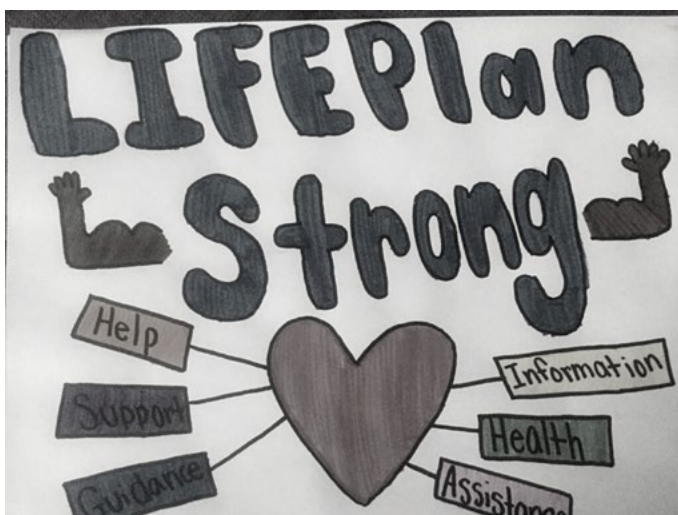 LIFEPlan
Strong
Help
Support
Guidance
Information
Health
Assistance